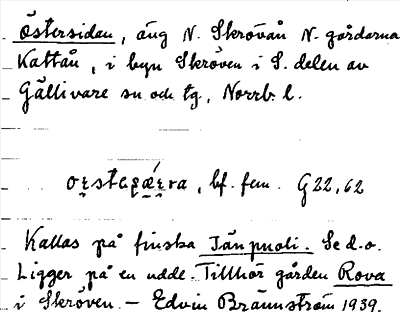 Östersidan, äng N. Skrövån N. gårdarna
Kattån, i byn Skröven i S. delen av
Gällivare sn och tg, Norrb. l.
bf. fem. G22,62
Kallas på finska Tänpuoli. Se d.o.
Ligger på en udde. Tillhör gården Rova
i Skröven. – Edvin Brännström 1939.